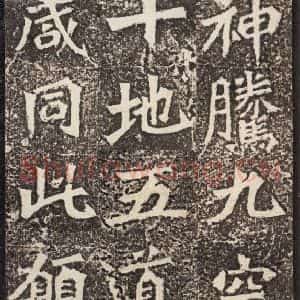 神騰九空
十地五道
咸同此願